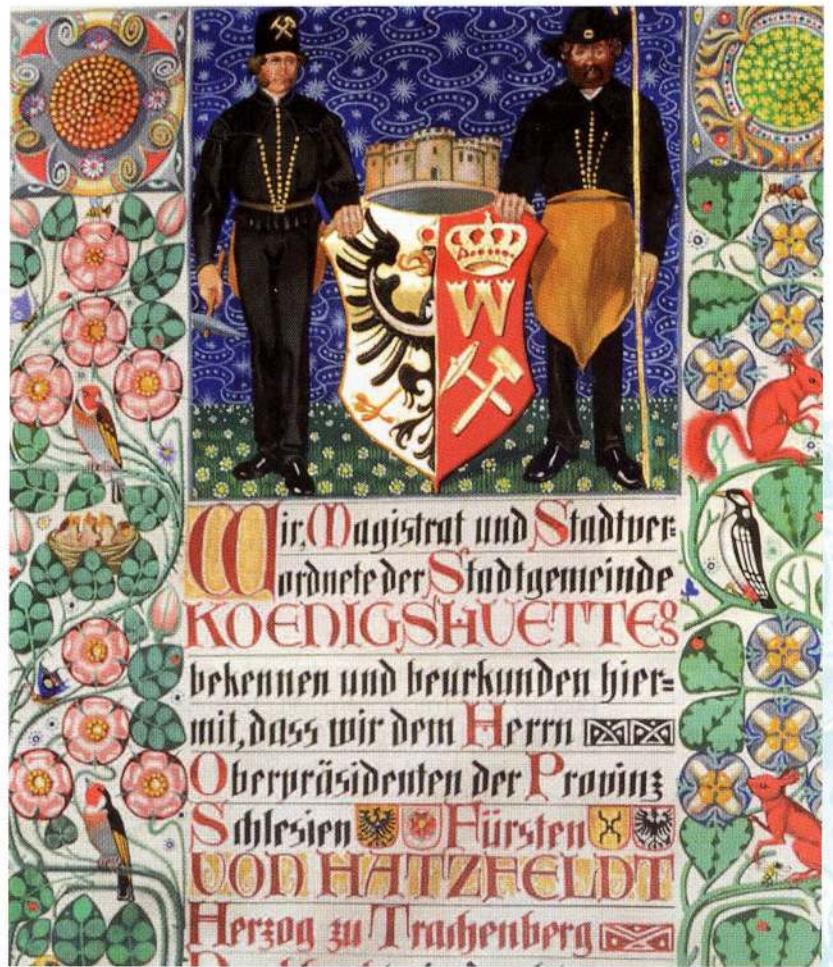 W
Wir, Magistrat und Stadtver=
ordnete der Stadtgemeinde
KOENIGSHUETTE
bekennen und beurkunden hier=
mit, dass wir dem Herrn
Oberpräsidenten der Provinz
Schlesien Fürsten
VON HATZFELDT
Herzog zu Trachenberg